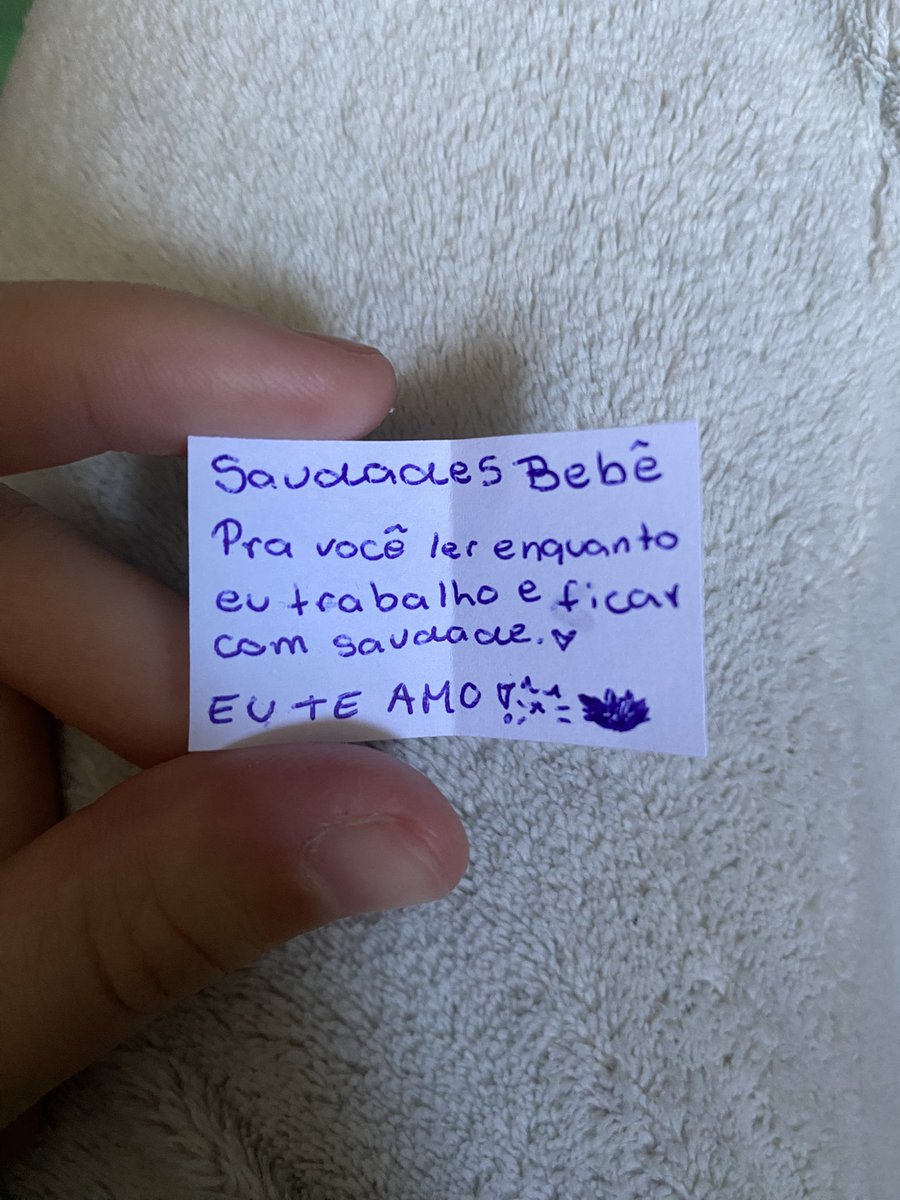 Saudades Bebê
Pra você ler enquanto
eu trabalho e ficar
com saudade.
EU TE AMO